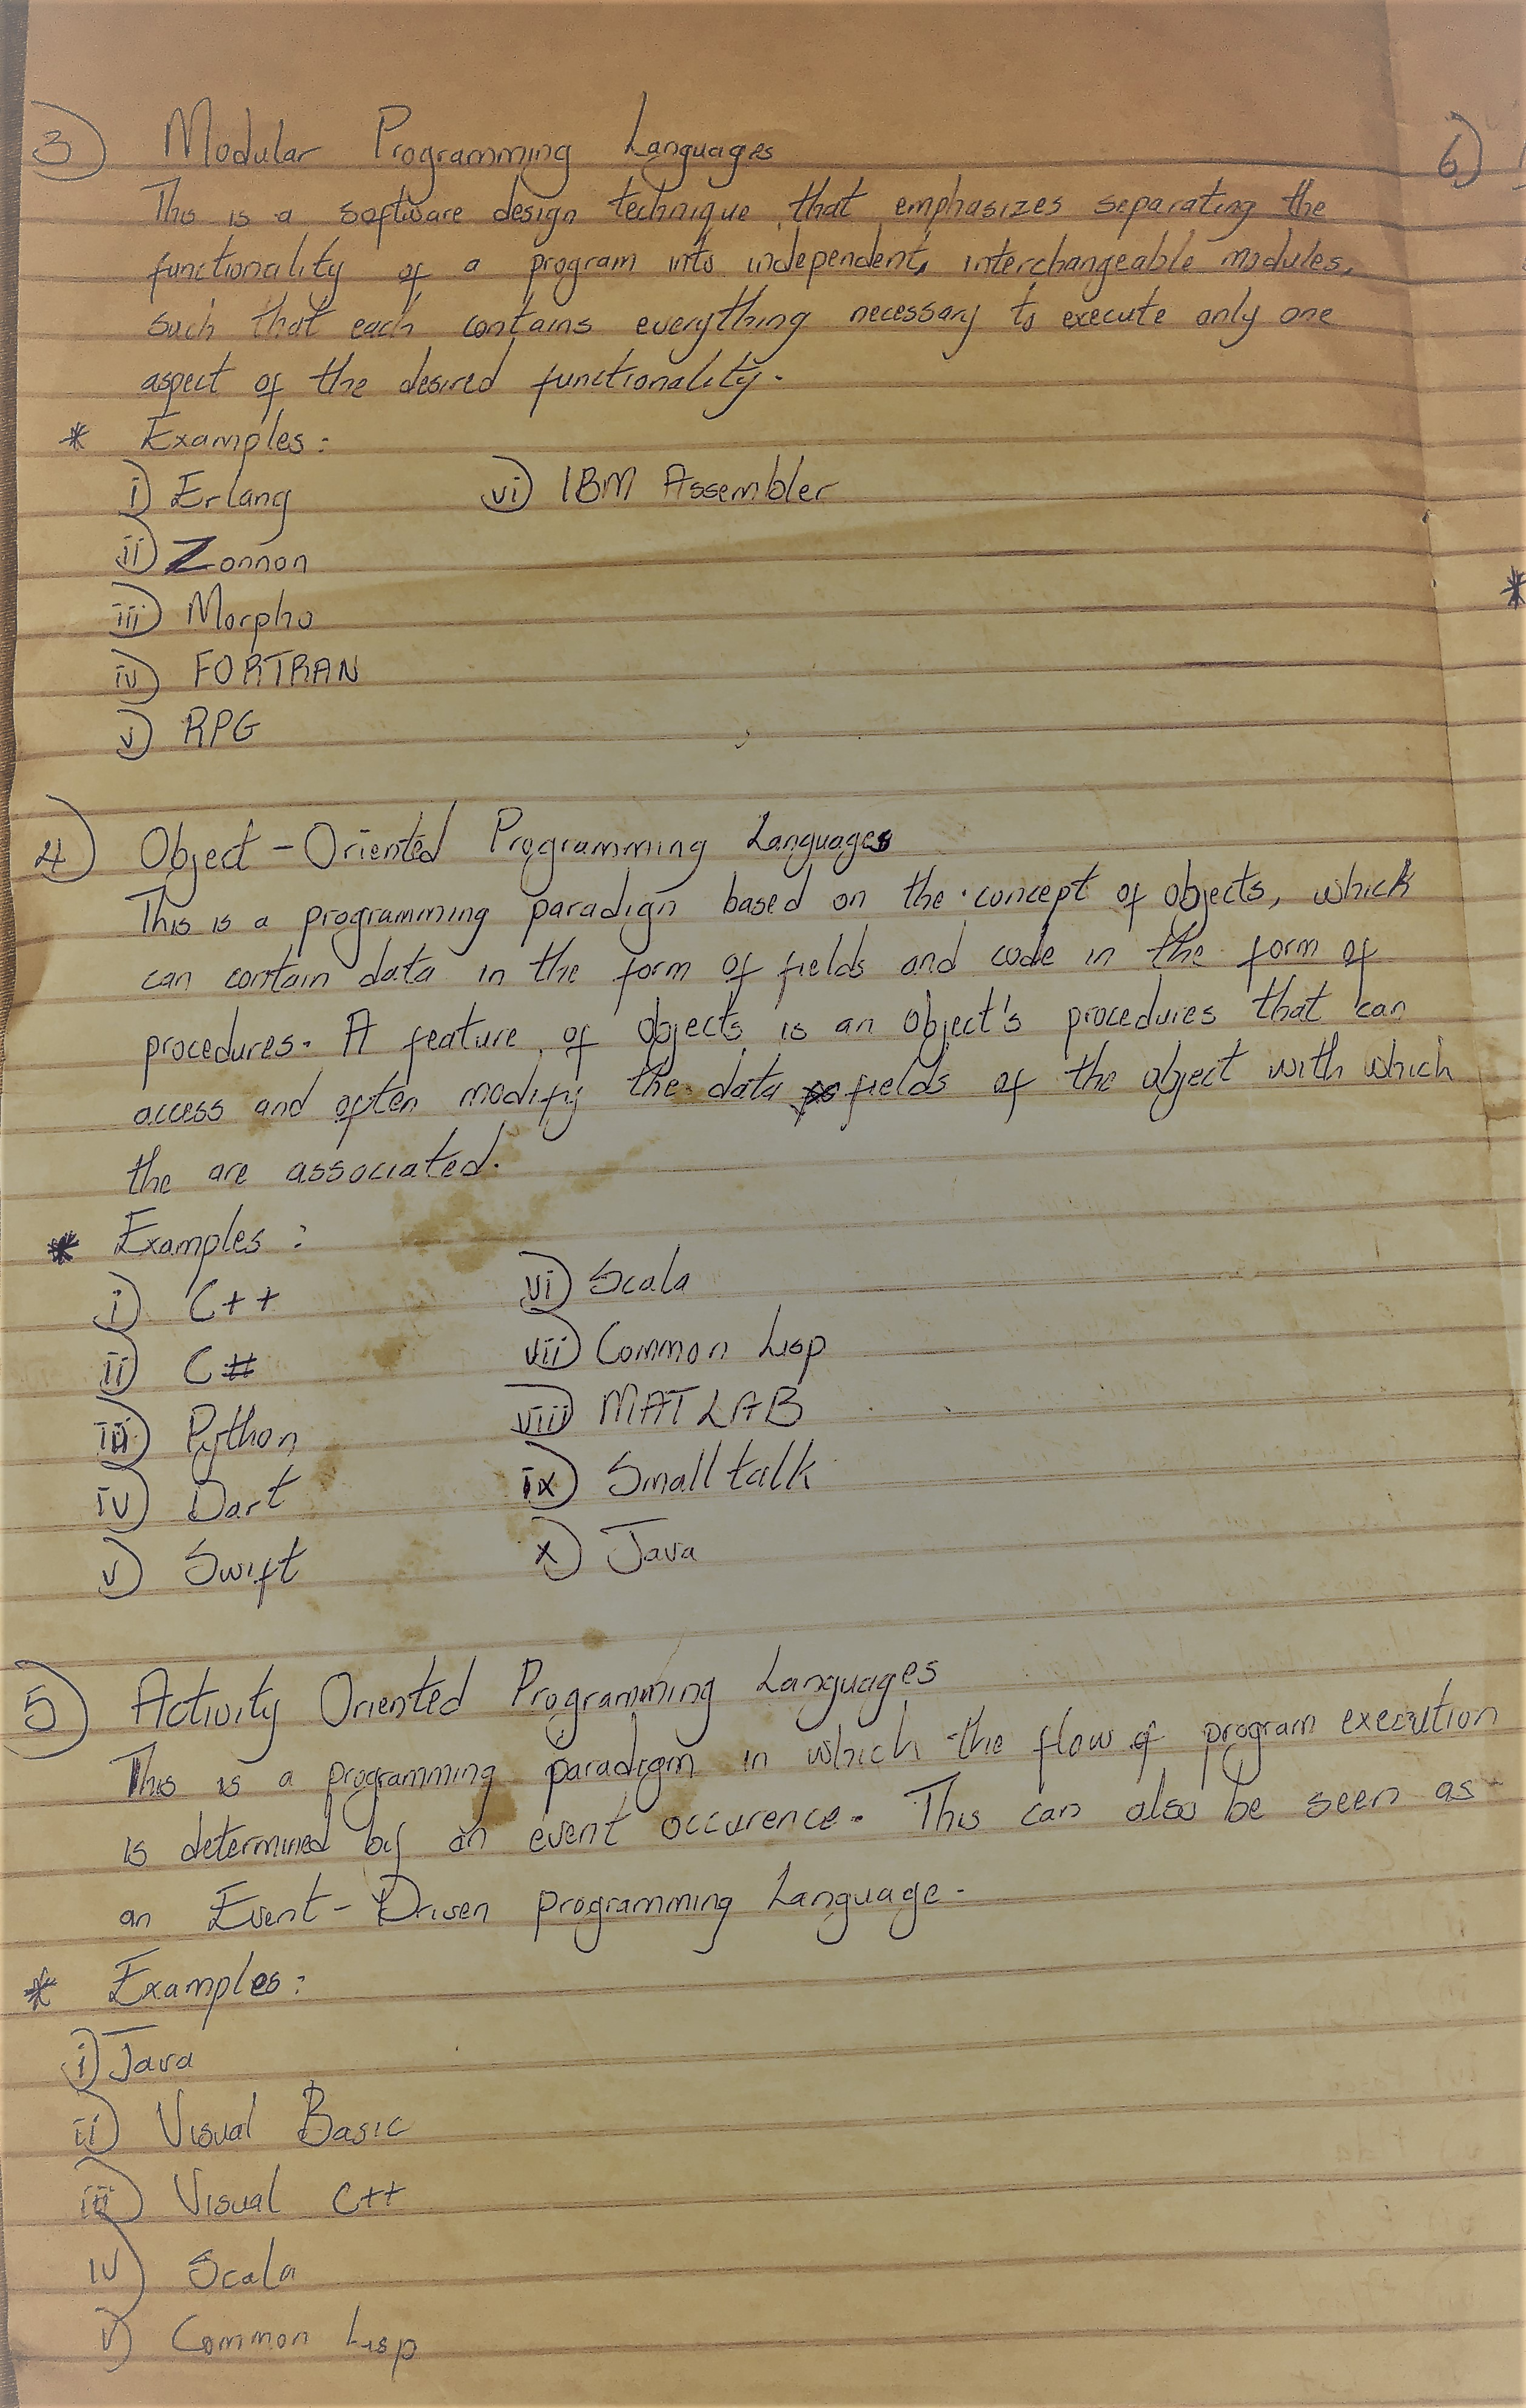 3) Modular Programming Languages
This is a software design technique that emphasizes separating the
functionality of a program into independent, interchangeable modules,
such that each contains everything necessary to execute only one
aspect of the desired functionality.
* Examples:
i) Erlang
ii) Zonnon
iii) Morpho
iv) FORTRAN
v) RPG
vi) IBM Assembler
4) Object-Oriented Programming Languages
This is a programming paradign based on the concept of objects, which
can contain data in the form of fields and code in the form of
procedures. A feature of objects is an object's procedures that can
access and often modify the data fields of the object with which
the are associated.
* Examples:
i) C++
ii) C#
iii) Python
iv) Dart
v) Swift
vi) Scala
vii) Common Lisp
viii) MATLAB
ix) Smalltalk
x) Java
5) Activity Oriented Programming Languages
This is a programming paradigm in which the flow of program execution
is determined by an event occurence. This can also be seen as
an Event-Driven programming Language.
* Examples:
i) Java
ii) Visual Basic
iii) Visual C++
iv) Scala
v) Common Lisp
6)
*